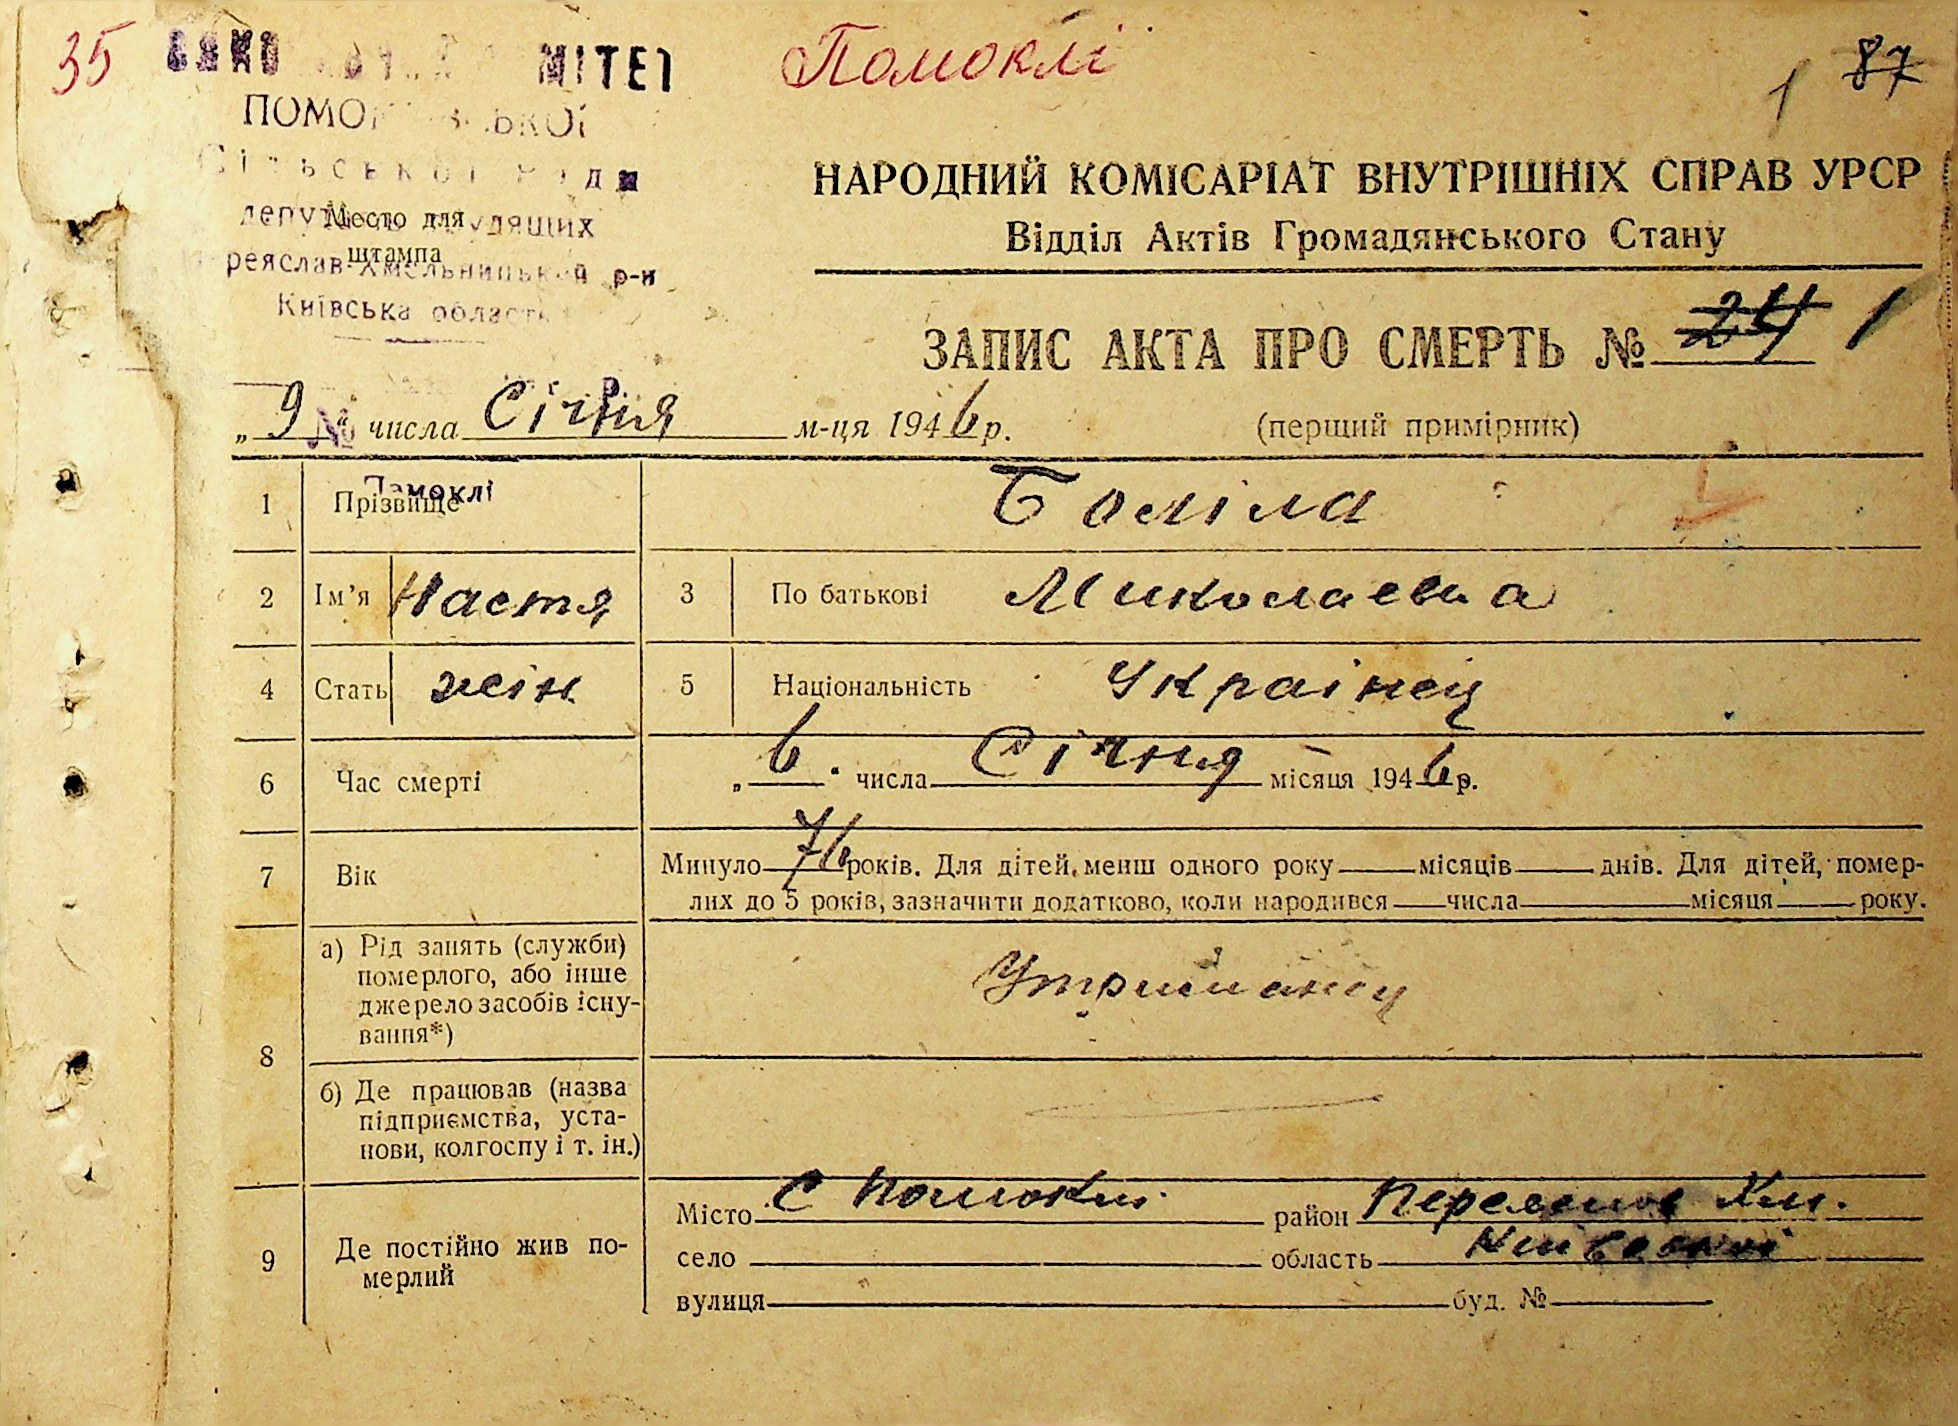 35 Помоклі 1 87
МІТЕТ
ПОМО ЬКОЇ
депут удящих
Место для
штампа
реяслав-Хмельницький р-н
Київська област
НАРОДНИЙ КОМІСАРІАТ ВНУТРІШНІХ СПРАВ УРСР
Відділ Актів Громадянського Стану
ЗАПИС АКТА ПРО СМЕРТЬ № 24 1
„9“ числа Січня м-ця 1946 р. (перший примірник)
№
Помоклі
1 Прізвище Боміла
2 Ім'я Настя 3 По батькові Миколаевна
4 Стать жін 5 Національність Украінец
6 Час смерті „6“ числа Січня місяця 1946 р.
7 Вік Минуло 76 років. Для дітей, менш одного року місяців днів. Для дітей, помер-
лих до 5 років, зазначити додатково, коли народився числа місяця року.
8 а) Рід занять (служби)
померлого, або інше
джерело засобів існу-
вання*)
Утриманец
б) Де працював (назва
підприємства, уста-
нови, колгоспу і т. ін.)
9 Де постійно жив по-
мерлий
Місто С Помоклі район Переяслав Хм.
село область Київської
вулиця буд. №